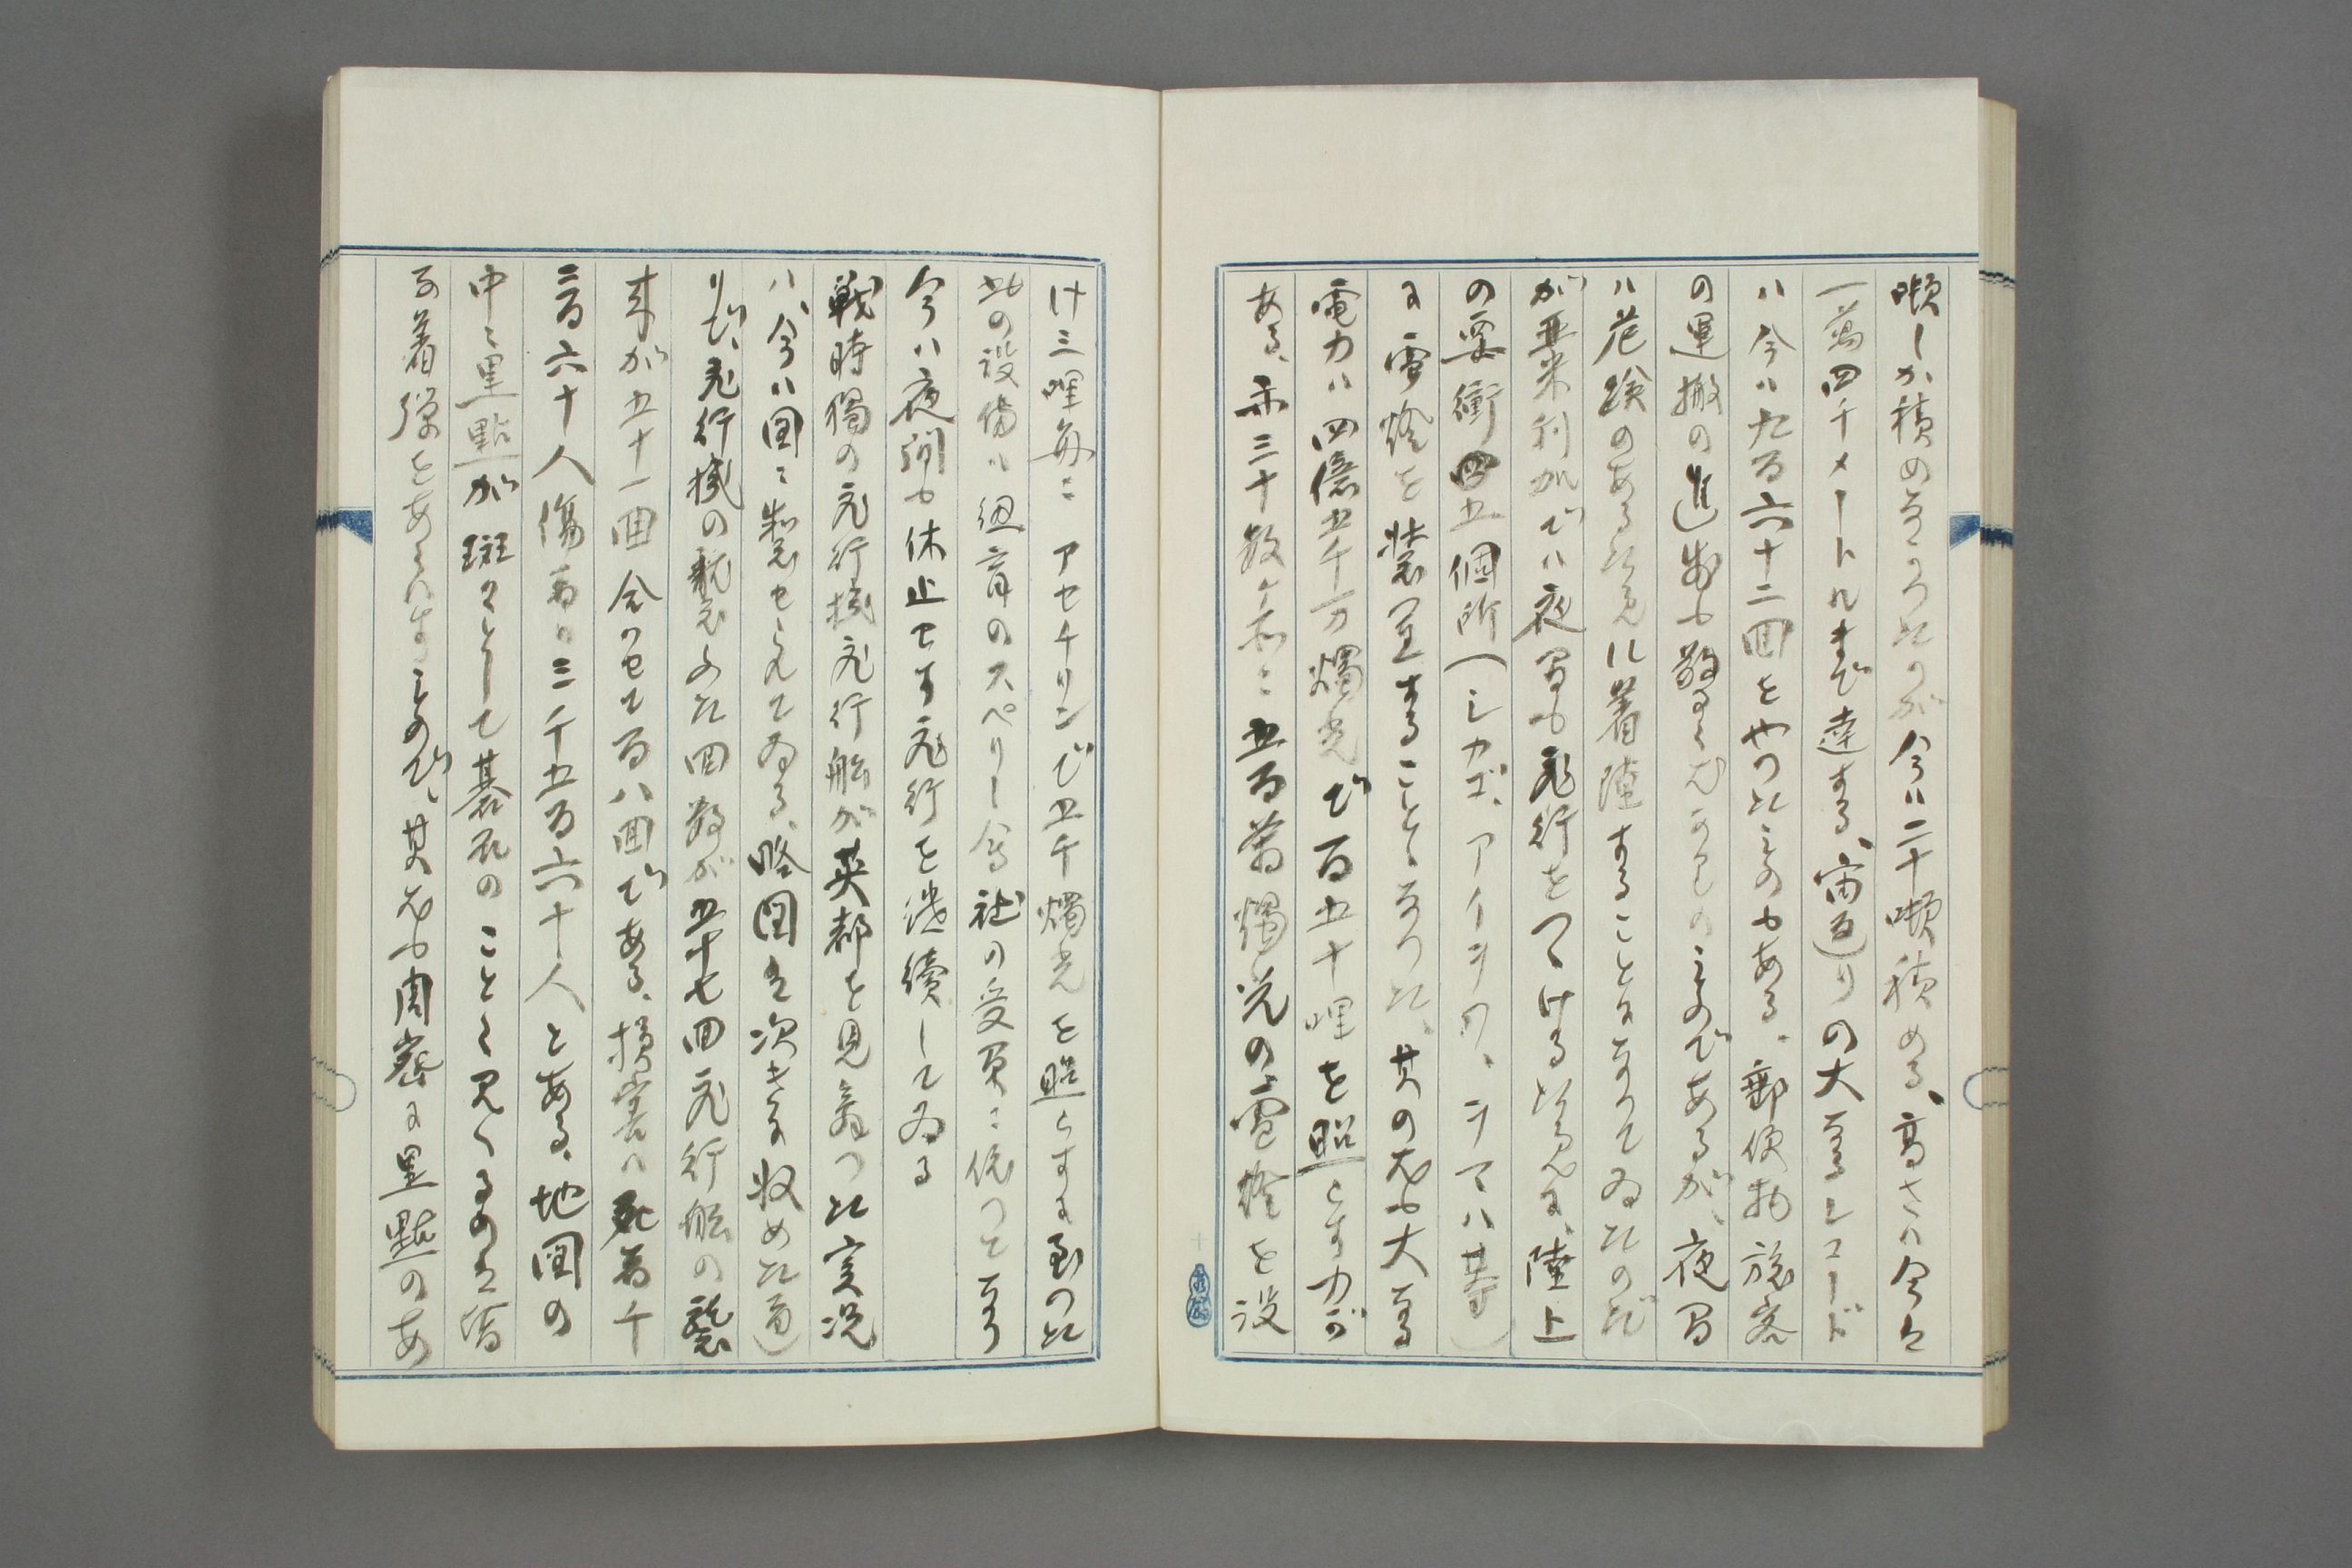 噸しか積めなかつたのが今ハ二十噸積める、高さハ今ハ
一萬四千メートルまで達する、宙返りの大なるレコード
ハ今ハ九百六十二回をやつたものもある、郵便物旅客
の運搬の進歩も驚くべきものであるが、夜間
ハ危険のある為めに着陸することになつてゐたのだ
が亜米利加でハ夜間も飛行をつゞける為めに、陸上
の要衝四五個所(シカゴ、アイヲワ、ヲマハ等)
に電燈を装置することゝなつた、其の尤も大なる
電力ハ四億五千万燭光で百五十哩を照らす力が
ある、亦三十数ヶ所に五百萬燭光の電燈を設
け三哩毎にアセチリンで五千燭光を照らすに至つた
此の設備ハ紐育のスペリー會社の受負に依つてなり
今ハ夜間も休止せず飛行を継續してゐる
戦時獨の飛行機飛行船が英都を見舞つた実況
ハ、今ハ図に製せられてゐる、略図を次ぎに収めた通
りで、飛行機の襲ふた回数が五十七回飛行船の襲
来が五十一回合せて百八回である、損害ハ死者千
三百六十人傷者ハ三千五百六十人とある、地図の
中に黒點が斑々として碁石のことく見へるのハ皆
な着弾をあらハすもので、其尤も周密に黒點のあ